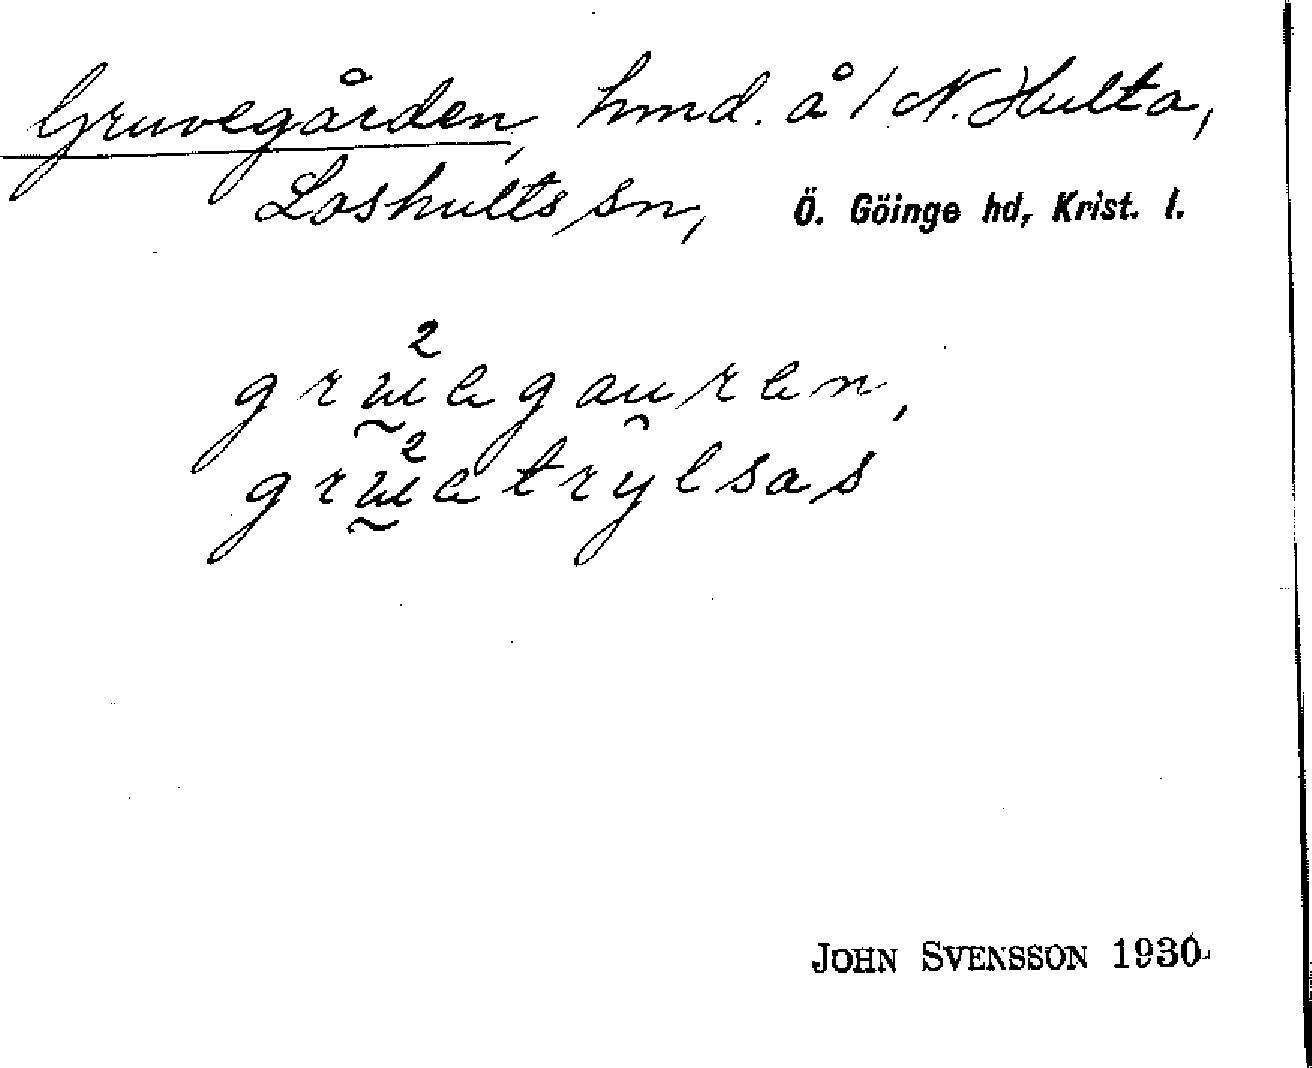 Gruvegården, hmd. å 1 N. Hulta,
Loshults sn, Ö. Göinge hd, Krist. l.
JOHN SVENSSON 1930